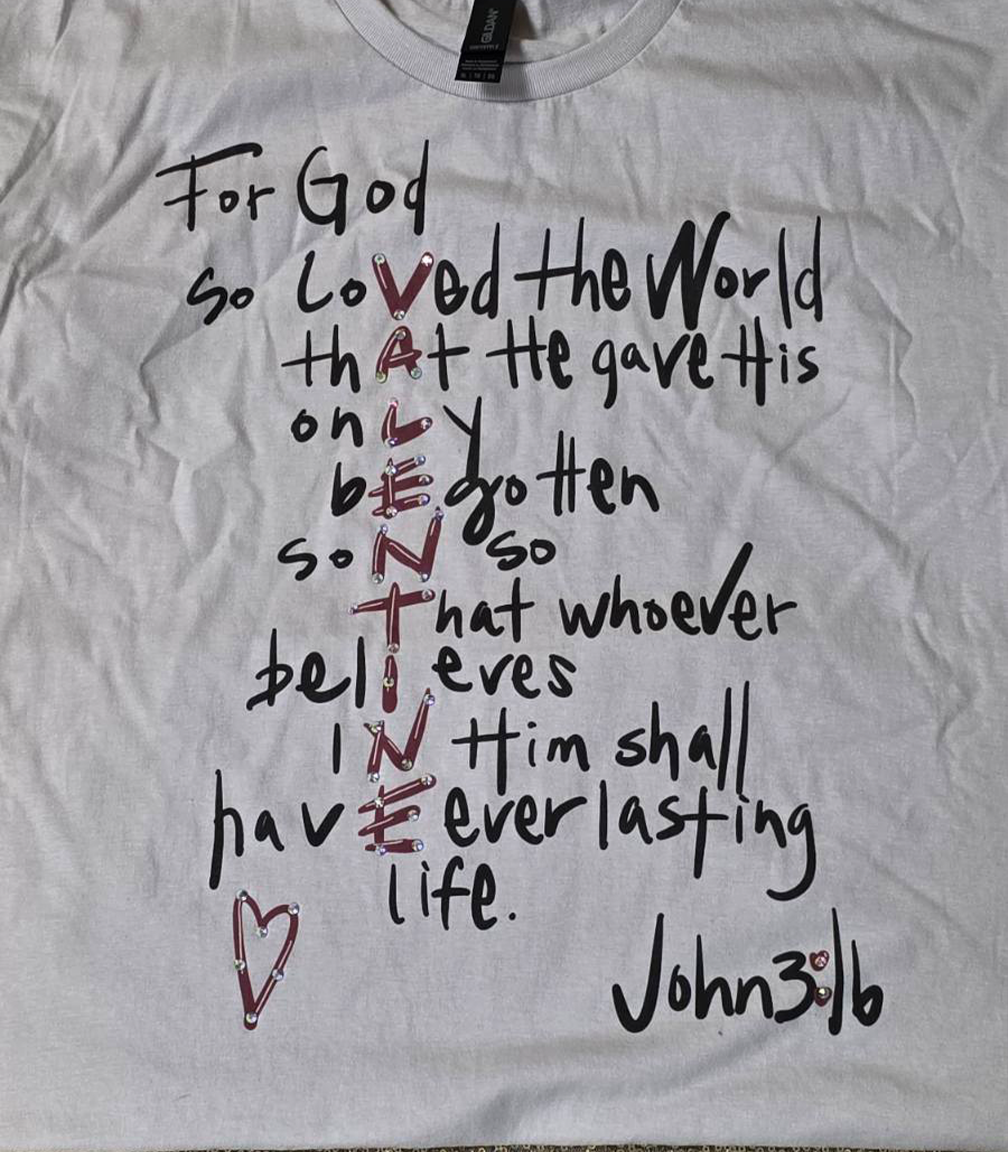 GILDAN
For God
so LoVed the World
thAt He gave His
onLy
bEgotten
soN so
That whoever
belIeves
IN Him shall
havE everlasting
life.
John3:16